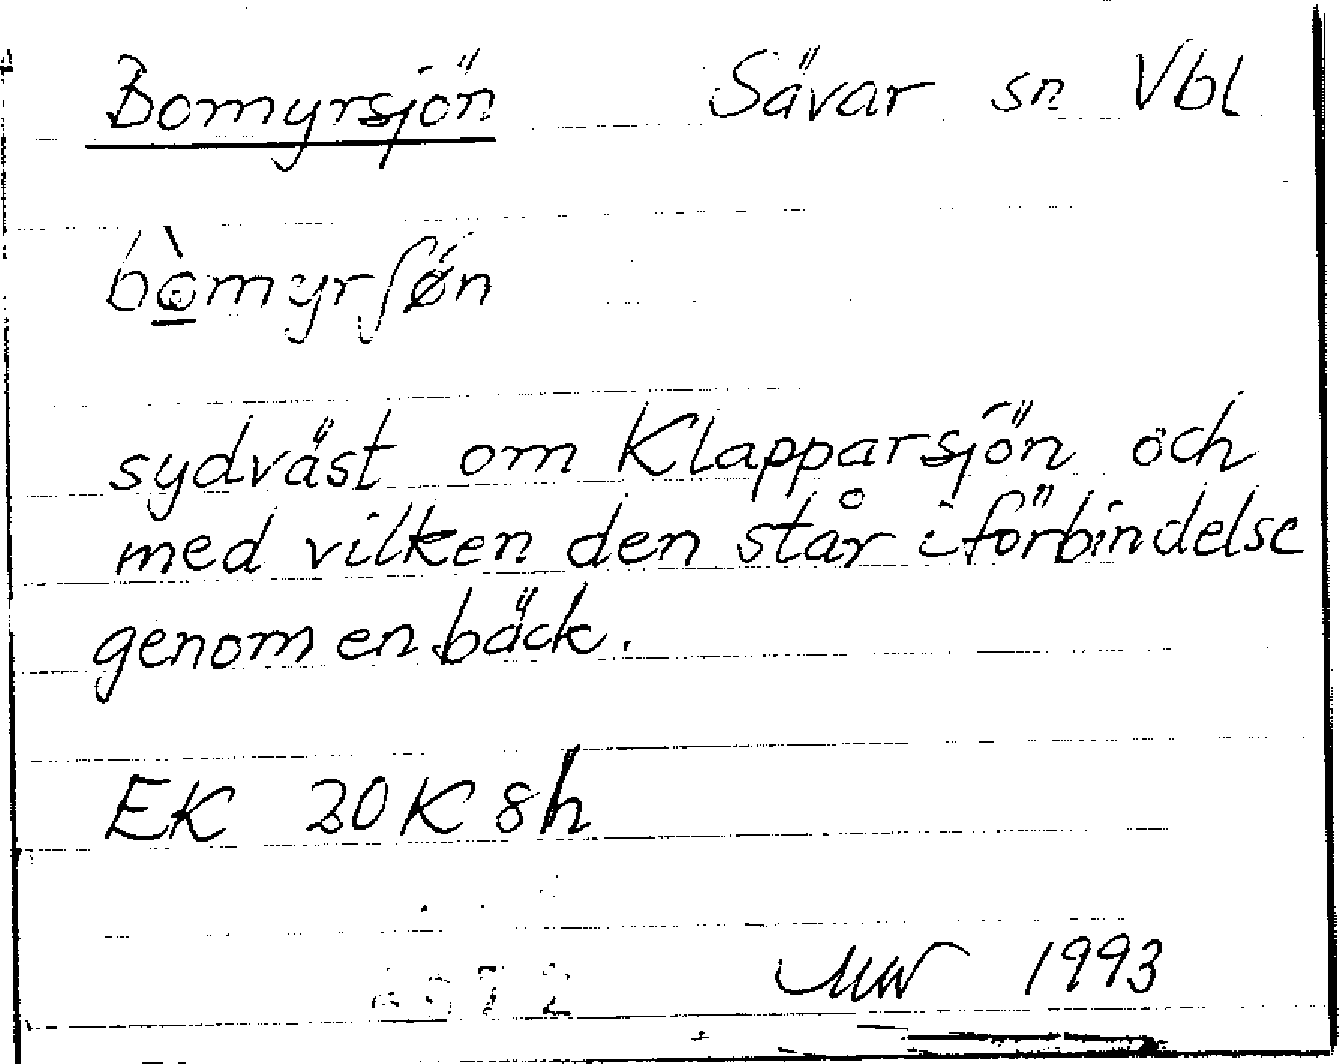 Bomyrsjön Sävar sn Vbl
bò̲myrʃøn
sydväst om Klapparsjön och
med vilken den står i förbindelse
genom en bäck.
EK 20K 8h
1993